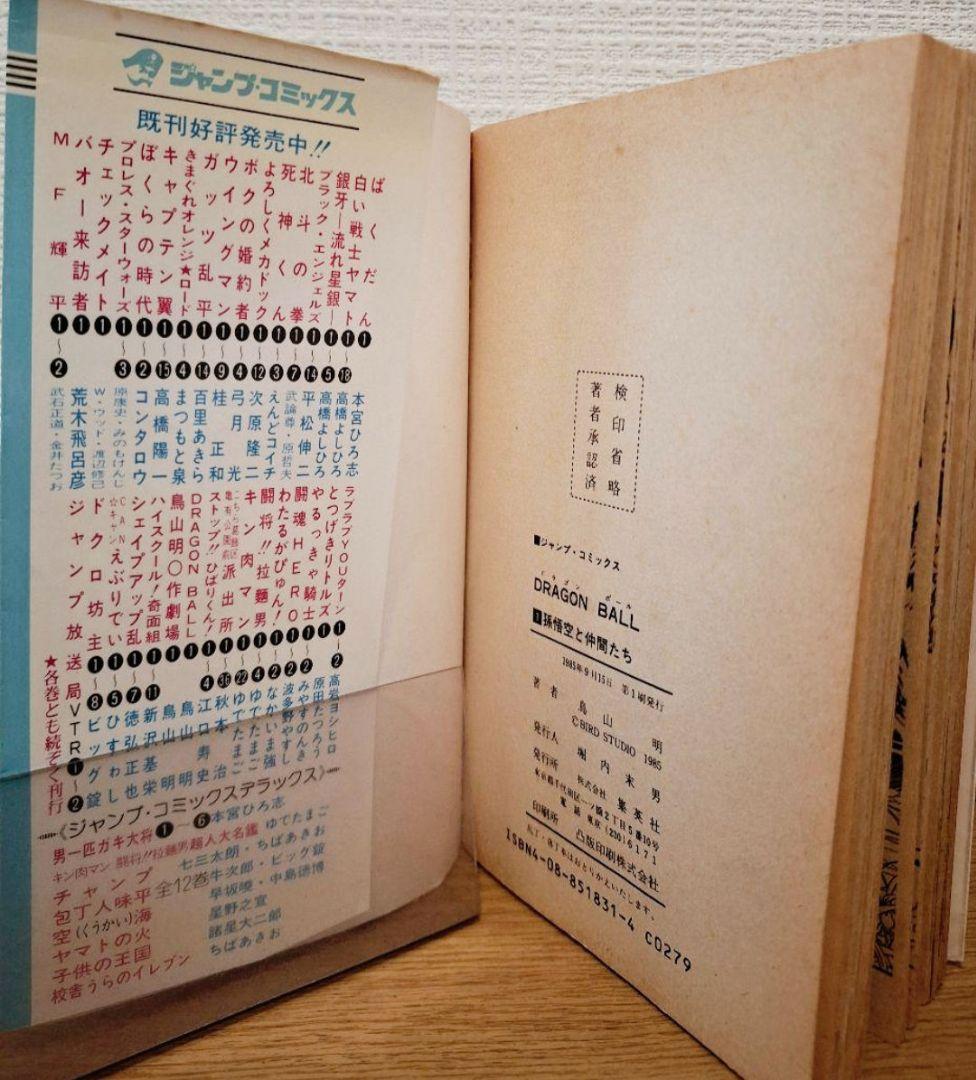 ジャンプ・コミックス
既刊好評発売中!!
ばくだん❶本宮ひろ志
白い戦士ヤマト❶〜⓲高橋よしひろ
銀牙―流れ星 銀―❶〜❺高橋よしひろ
ブラック・エンジェルズ❶〜⓮平松伸二
北斗の拳❶〜❼武論尊・原哲夫
死神くん❶〜❸えんどコイチ
よろしくメカドック❶〜⓬次原隆二
ボクの婚約者❶〜❹弓月 光
ウイングマン❶〜❾桂 正和
ガッツ乱平❶〜⓮百里あきら
きまぐれオレンジ★ロード❶〜❹まつもと泉
キャプテン翼❶〜⓯高橋陽一
ぼくらの時代❶〜❷コンタロウ
プロレス・スターウォーズ❶〜❸原康史・みのもけんじ
チェックメイト❶W・ウッド・渡辺修己
バオー来訪者❶荒木飛呂彦
MF輝平❶〜❷武石正道・金井たつお
ラブラブYOUターン❶〜❷高岩ヨシヒロ
とつげきリトルズ❶原田たつろう
やるっきゃ騎士❶〜❷みやすのんき
闘魂HERO❶〜❷波多野やすし
わたるがぴゅん!❶〜❷なかいま強
闘将!!拉麵男❶〜❹ゆでたまご
キン肉マン❶〜㉒ゆでたまご
こちら葛飾区亀有公園前派出所❶〜㊱秋本 治
ストップ!!ひばりくん!❶〜❹江口寿史
DRAGON BALL❶鳥山 明
鳥山明○作劇場❶鳥山 明
ハイスクール!奇面組❶〜⓫新沢基栄
シェイプアップ乱❶〜❼徳弘正也
CAN☆キャンえぶりでい❶〜❺ひすわし
ドクロ坊主❶〜❽ビッグ錠
ジャンプ放送局VTR❶〜❷
★各巻とも続ぞく刊行
《ジャンプ・コミックスデラックス》
男一匹ガキ大将❶〜❻本宮ひろ志
キン肉マン 闘将!!拉麵男 超人大名鑑 ゆでたまご
チャンプ 七三太朗・ちばあきお
包丁人味平全12巻 牛次郎・ビッグ錠
空(くうかい)海 早坂暁・中島徳博
ヤマトの火 星野之宣
子供の王国 諸星大二郎
校舎うらのイレブン ちばあきお
検印省略
著者承認済
■ジャンプ・コミックス
ドラゴン ボール
DRAGON BALL
1孫悟空と仲間たち
1985年9月15日 第1刷発行
著者 鳥山 明
©BIRD STUDIO 1985
発行人 堀内末男
発行所 株式会社 集英社
東京都千代田区一ツ橋2丁目5番10号
電話 東京(230)6171
印刷所 凸版印刷株式会社
乱丁、落丁本はおとりかえいたします。
ISBN4-08-851831-4 C0279